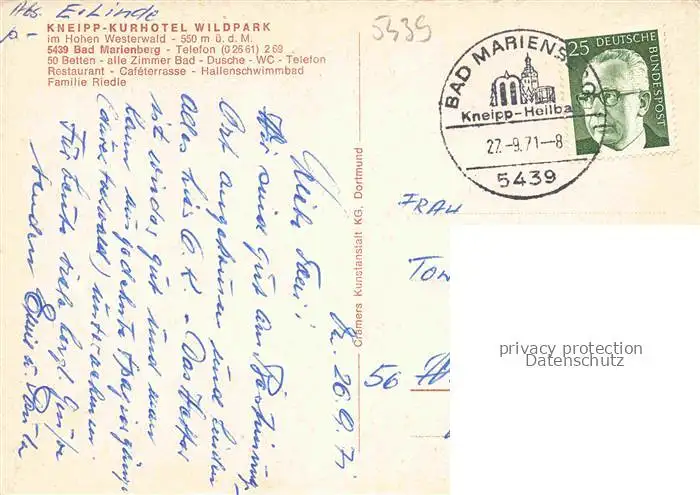 Abs. E. Linde
p-
KNEIPP-KURHOTEL WILDPARK
im Hohen Westerwald - 550 m ü. d. M.
5439 Bad Marienberg - Telefon (0 26 61) 2 69
50 Betten - alle Zimmer Bad - Dusche - WC - Telefon
Restaurant - Caféterrasse - Hallenschwimmbad
Familie Riedle
5439
BAD MARIENB
Kneipp-Heilba
27.-9.71-8
5439
25 DEUTSCHE
BUNDESPOST
26.9.71
Liebe
Wir sind gut am
Ort angekommen und finden
alles hier O.K. - Das Wetter
ist wieder gut und man
kann ausgedehnte Spaziergänge
unternehmen.
Für heute viele herzl. Grüße
senden
Cramers Kunstanstalt KG, Dortmund
FRAU
56
privacy protection
Datenschutz